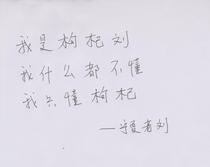 我是枸杞刘
我什么都不懂
我只懂枸杞
——宁夏老刘